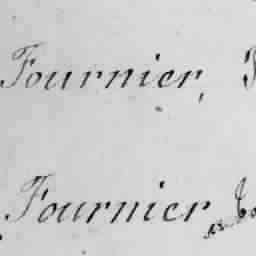 Fournier,
Fournier